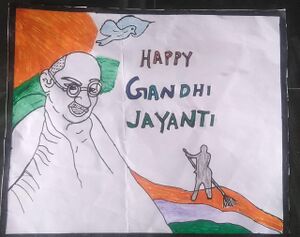 HAPPY
GANDHI
JAYANTI